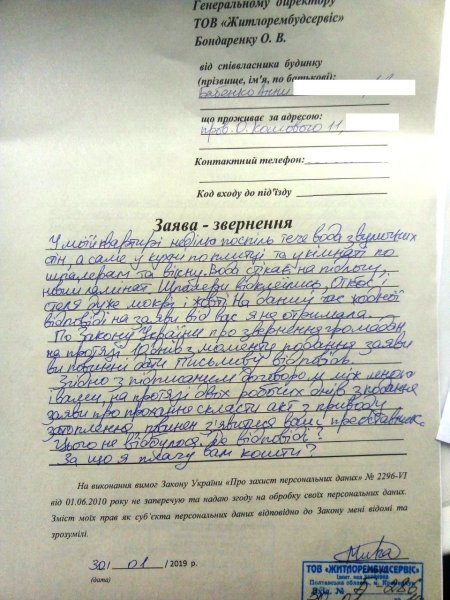 Генеральному директору
ТОВ «Житлорембудсервіс»
Бондаренку О. В.
від співвласника будинку
(прізвище, ім'я, по батькові):
що проживає за адресою:
пров. О. Кошового 11,
Контактний телефон:
Код входу до під'їзду
Заява - звернення
У моїй квартирі неділю поспіль тече вода з вуличних
стін, а саме у кухні по плитці та у кімнаті по
шпалерам та вікну. Вода стікає на підлогу,
новий ламінат. Шпалери відклеїлись, откос,
стеля дуже мокрі і жовті. На данний час жодної
відповіді на заяви від вас я не отримала.
По Закону України про звернення громадян
на протязі 10 днів з моменту подання заяви
ви повинні дати письмову відповідь.
Згідно з підписаним договором між мною
і вами, на протязі двох робочих днів з подання
заяви про прохання скласти акт з приводу
затоплення повинен з'явитися ваш представник.
Цього не відбулося. Де відповіді?
За що я плачу вам кошти?
На виконання вимог Закону України «Про захист персональних даних» № 2296-VI
від 01.06.2010 року не заперечую та надаю згоду на обробку своїх персональних даних.
Зміст моїх прав як суб'єкта персональних даних відповідно до Закону мені відомі та
зрозумілі.
30/ 01 /2019 р.
(дата)
ТОВ «ЖИТЛОРЕМБУДСЕРВІС»
Полтавська область, м.
Вхід. №